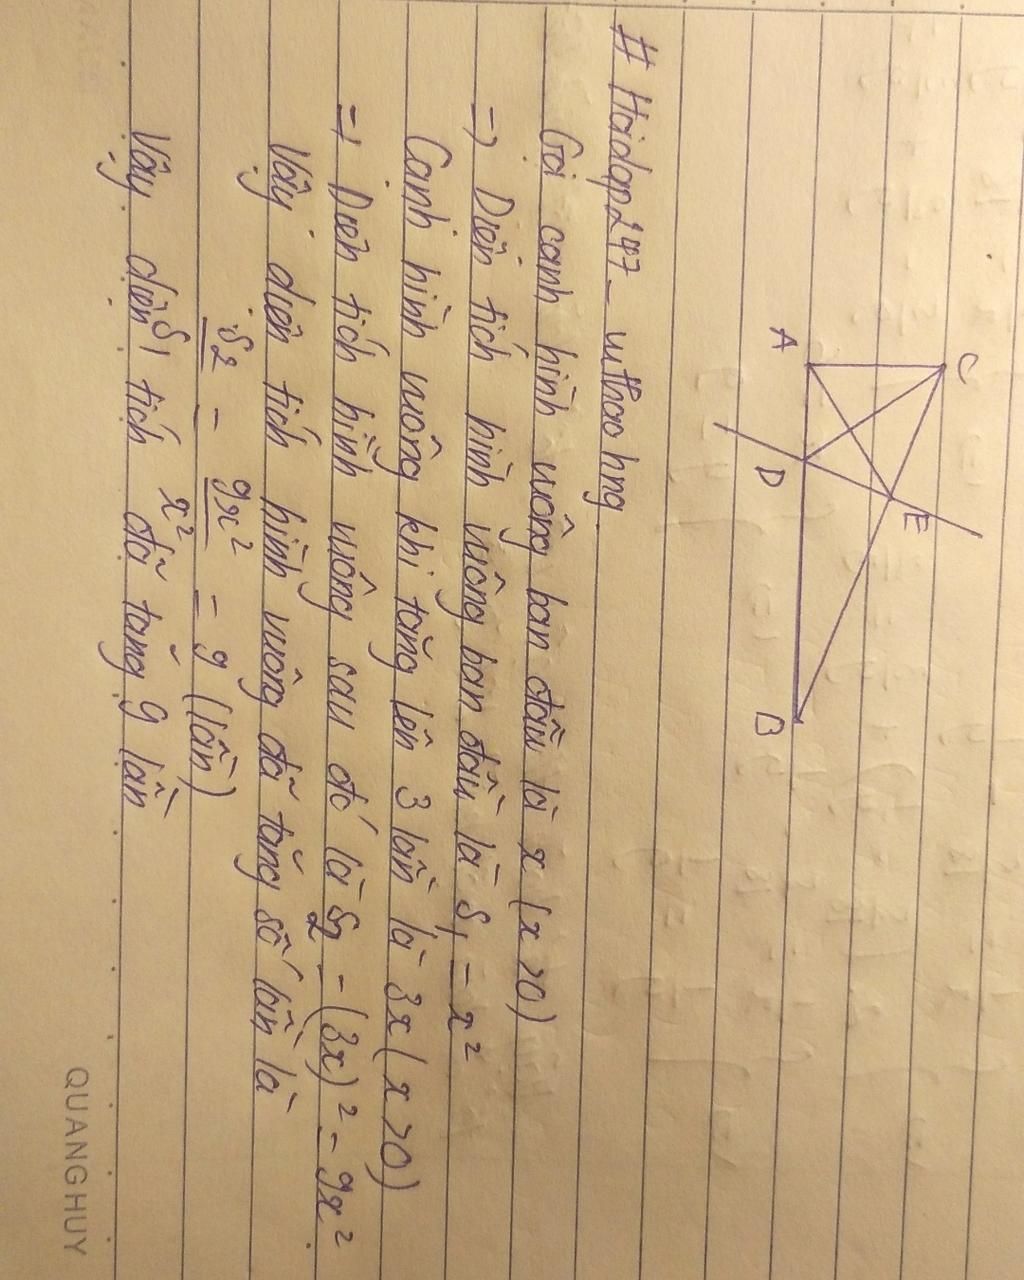 C
A
E
D
B
# Hoidap247_uthaohng
Gọi cạnh hình vuông ban đầu là x (x>0)
=) Diện tích hình vuông ban đầu là S₁ = x²
Cạnh hình vuông khi tăng lên 3 lần là 3x (x>0)
=) Diện tích hình vuông sau đó là S₂ = (3x)² = 9x²
Vậy diện tích hình vuông đã tăng số lần là
S₂ = 9x² = 9 (lần)
S₁ x²
Vậy diện tích đã tăng 9 lần
QUANGHUY